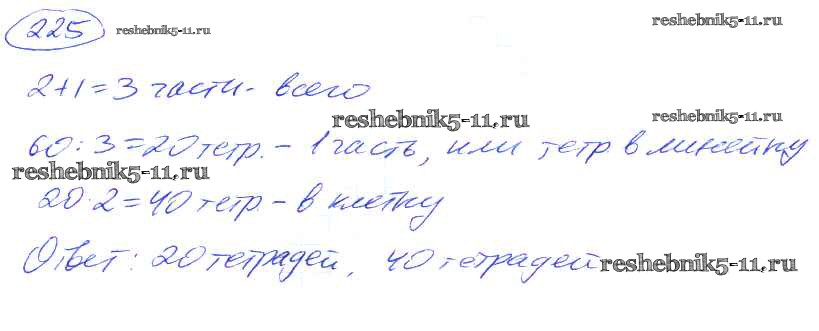 225 reshebnik5-11.ru reshebnik5-11.ru
2+1=3 части - всего
reshebnik5-11.ru reshebnik5-11.ru
60:3=20 тетр. - 1 часть, или тетр в линейку
reshebnik5-11.ru
20·2=40 тетр. - в клетку
Ответ: 20 тетрадей, 40 тетрадей reshebnik5-11.ru